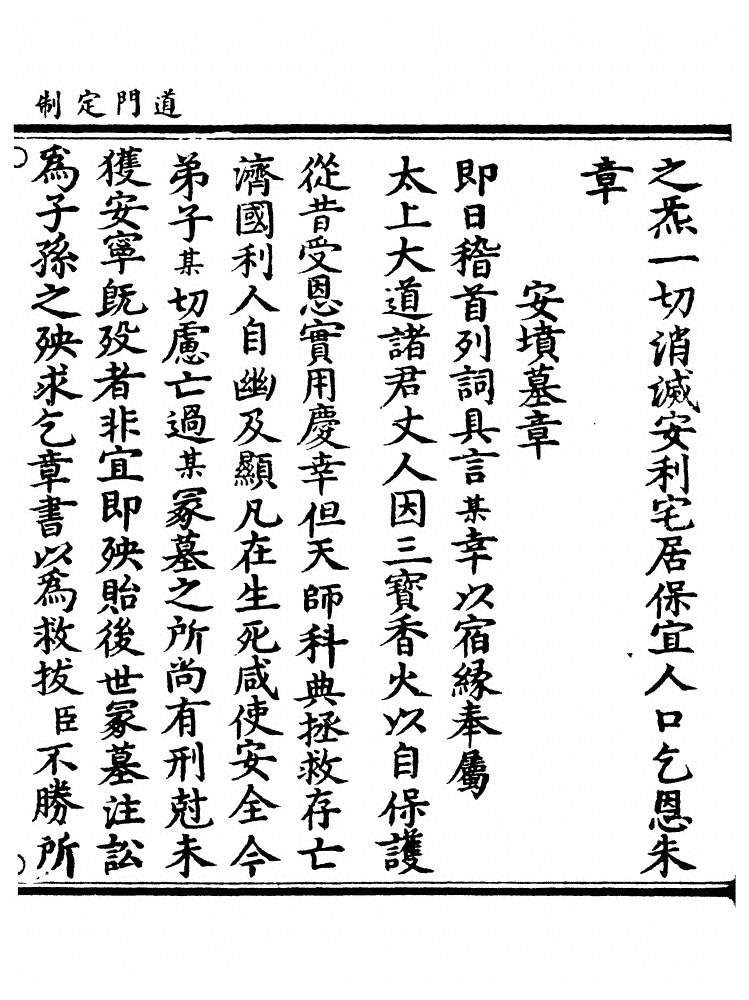 道門定制
之炁一切消滅安利宅居保宜人口乞恩朱
章
安墳墓章
即日稽首列詞具言某幸以宿緣奉屬
太上大道諸君丈人因三寶香火以自保護
從昔受恩實用慶幸但天師科典拯救存亡
濟國利人自幽及顯凡在生死咸使安全今
弟子某切慮亡過某冢墓之所尚有刑尅未
獲安寧旣歿者非宜即殃貽後世冢墓注訟
爲子孫之殃求乞章書以爲救拔臣不勝所